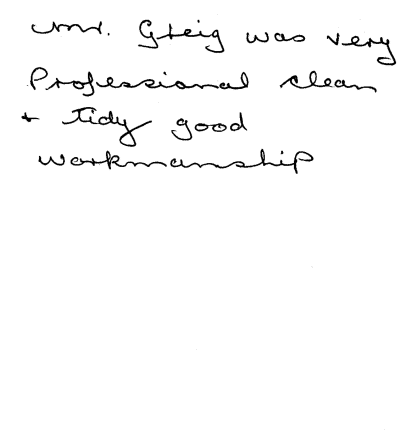 Mr. Greig was very
Professional clean
+ Tidy good
workmanship